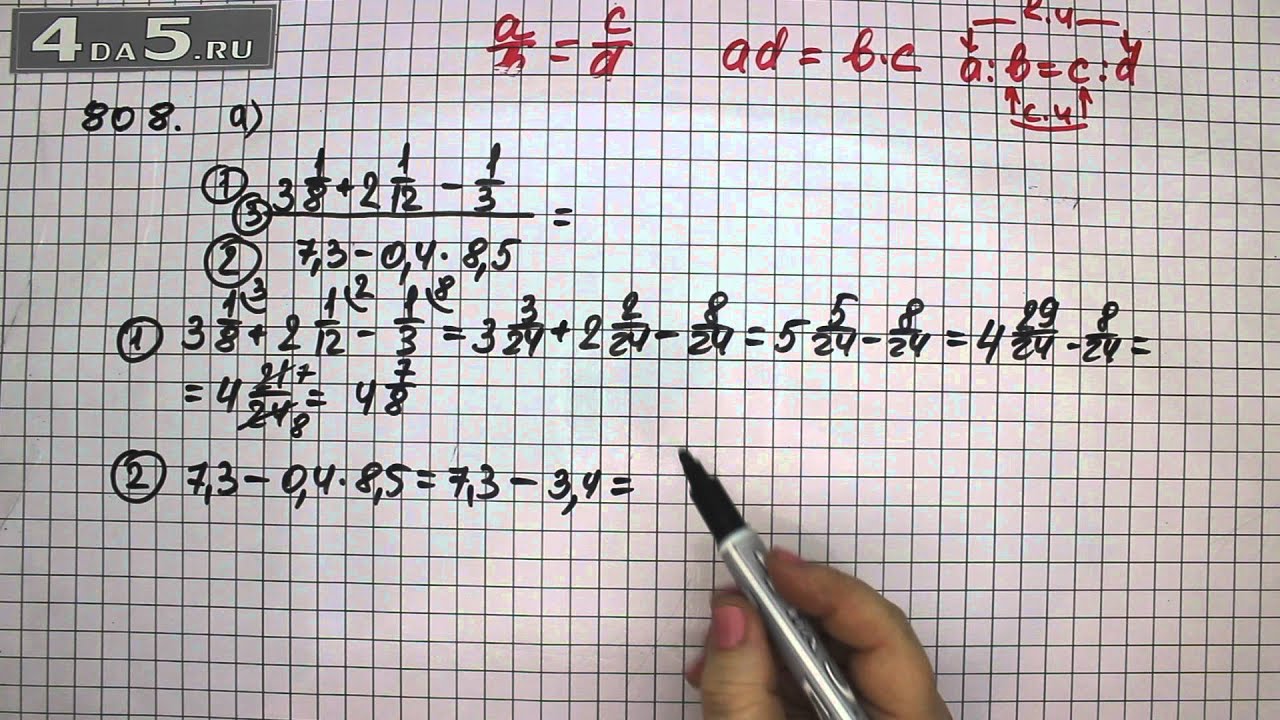 4DA5.RU
a/b = c/d ad = b·c к.ч
a:b=c:d
с.ч
808. а)
① 3 1/8 + 2 1/12 - 1/3
③ =
② 7,3 - 0,4 · 8,5
① 3 1/8 (3 + 2 1/12 (2 - 1/3 (8 = 3 3/24 + 2 2/24 - 8/24 = 5 5/24 - 8/24 = 4 29/24 - 8/24 =
= 4 21 7/24 8 = 4 7/8
② 7,3 - 0,4 · 8,5 = 7,3 - 3,4 =